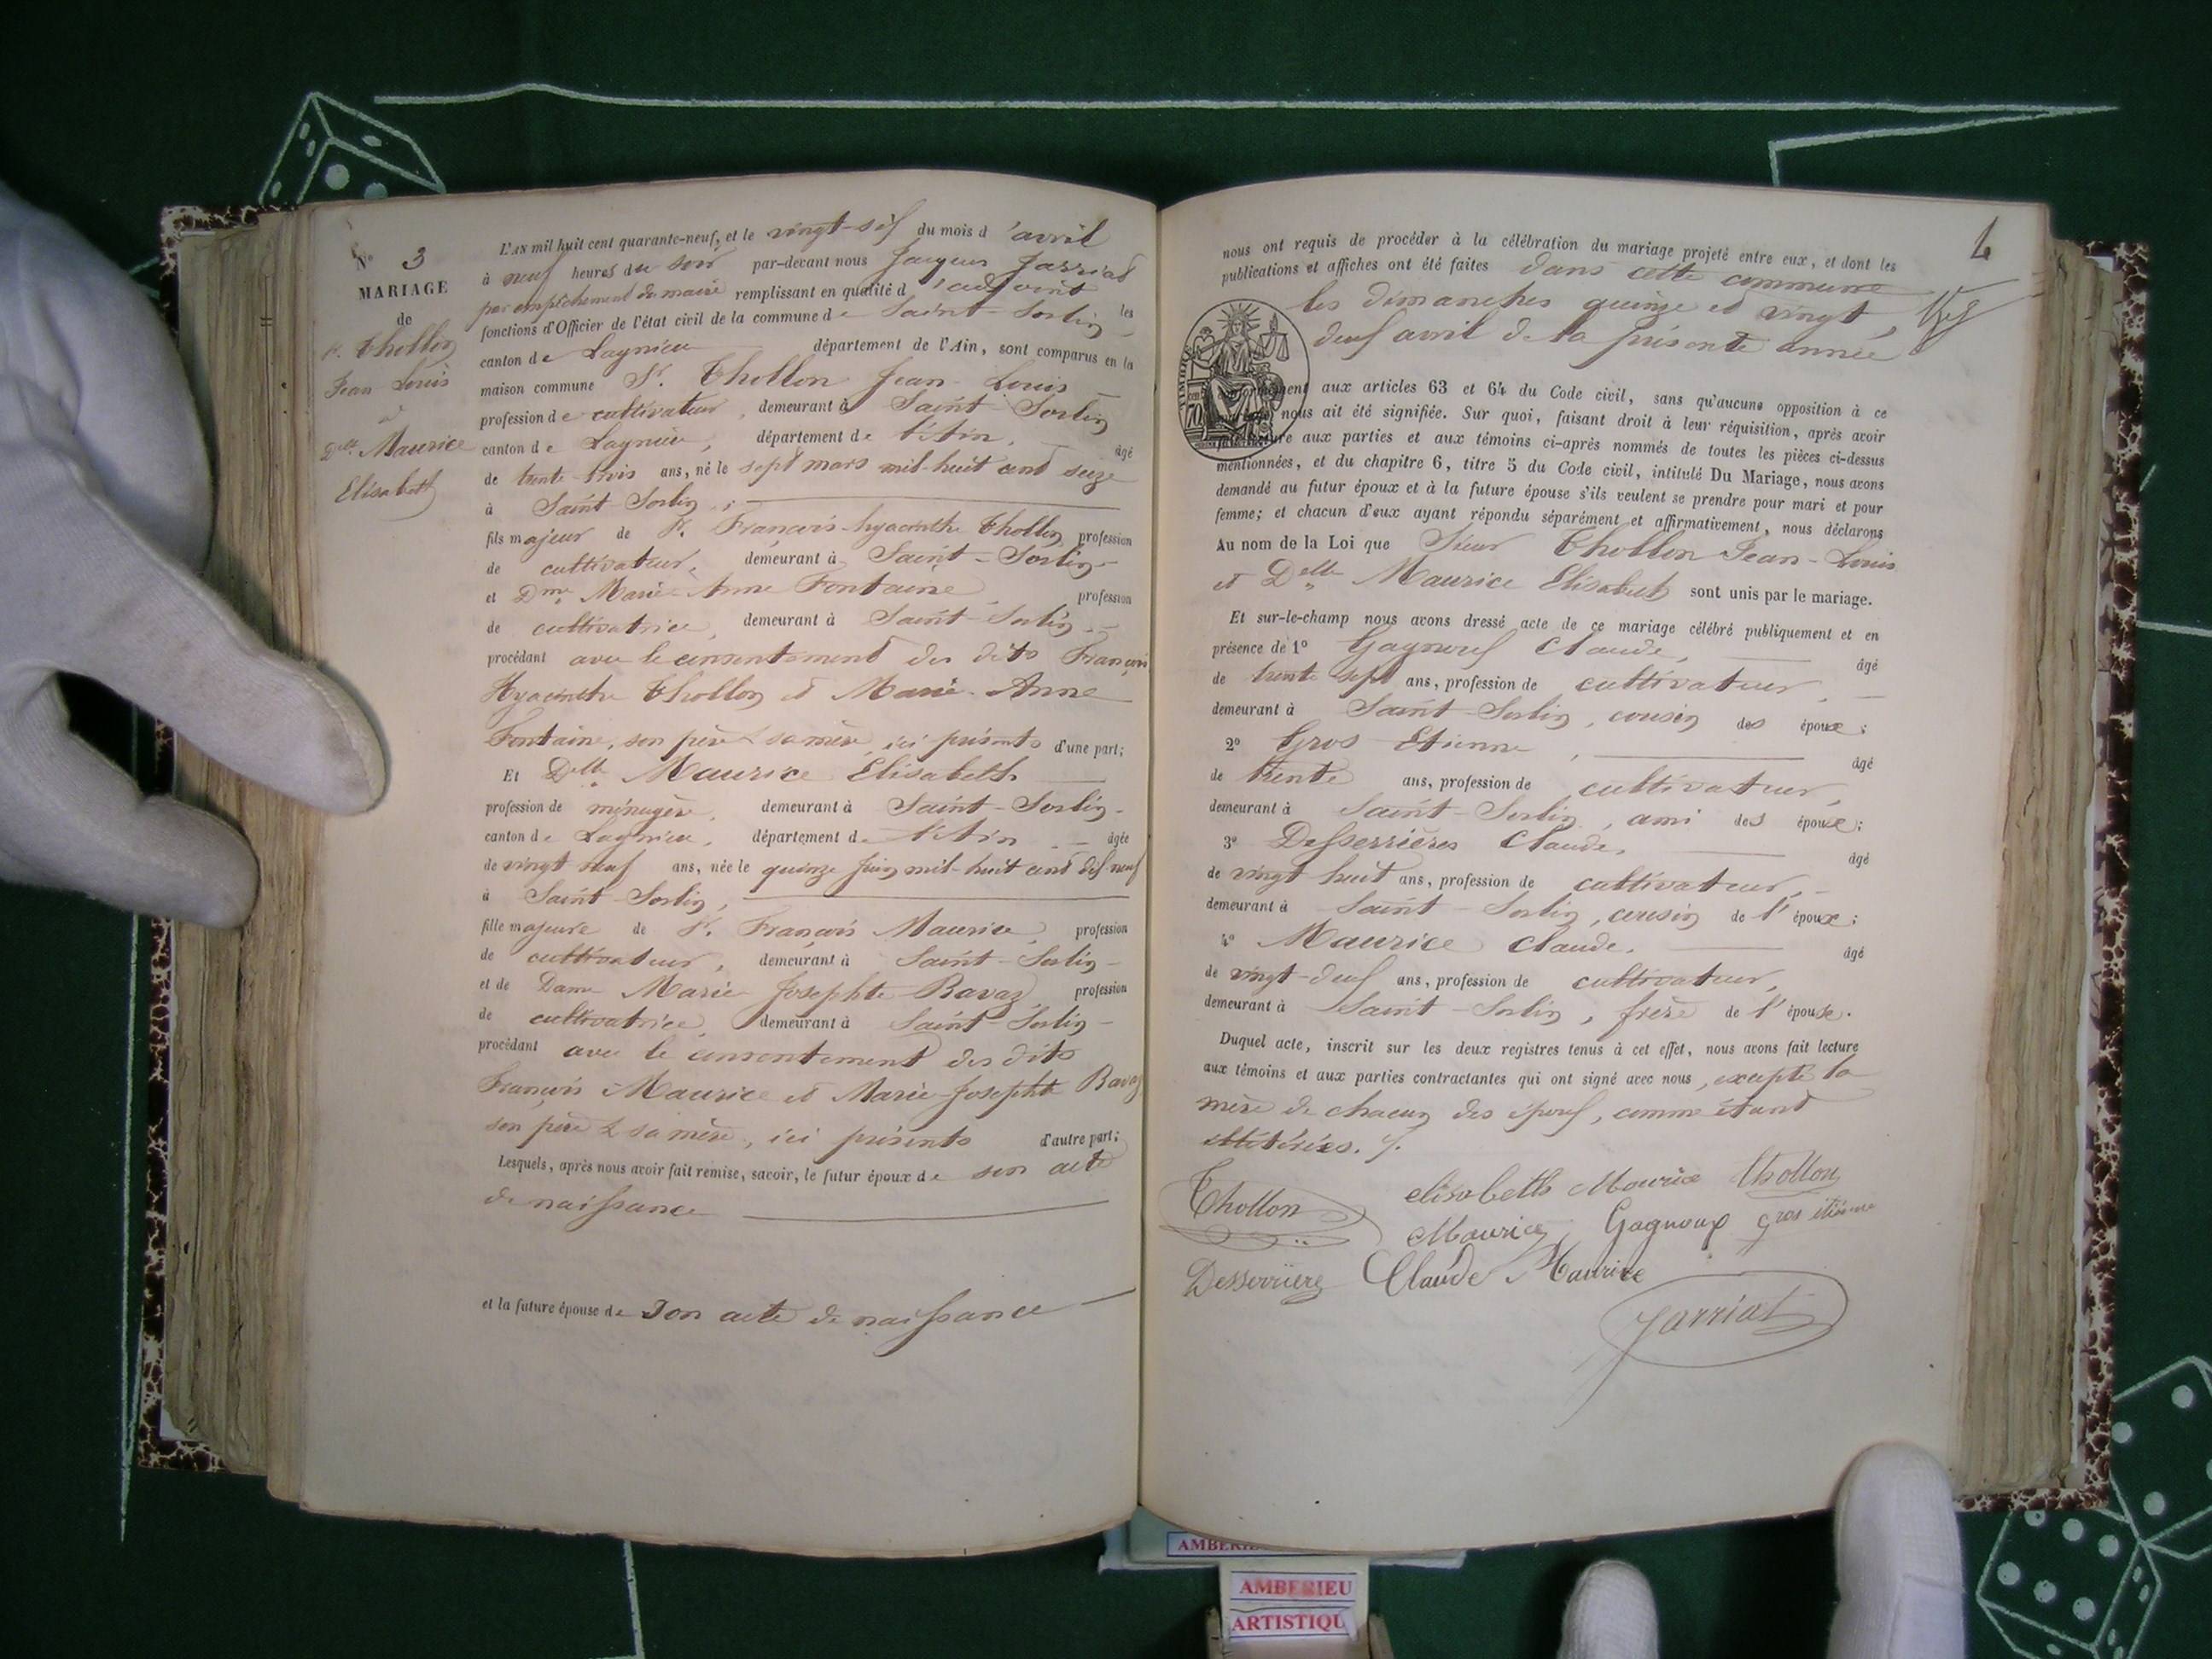 N° 3
MARIAGE
de
Sr. Thollon
Jean Louis
à
Delle Maurice
Elisabeth
L'AN mil huit cent quarante-neuf, et le vingt-six du mois d'avril
à neuf heures du soir par-devant nous Jacques Jarriat
par empêchement du maire remplissant en qualité d'adjoint les
fonctions d'Officier de l'état civil de la commune de Saint-Sorlin
canton de Lagnieu département de l'Ain, sont comparus en la
maison commune Sr. Thollon Jean-Louis
profession de cultivateur, demeurant à Saint Sorlin
canton de Lagnieu, département de l'Ain, âgé
de trente-trois ans, né le sept mars mil-huit cent seize
à Saint Sorlin,
fils majeur de Sr. François-hyacinthe Thollon, profession
de cultivateur, demeurant à Saint-Sorlin-
et Dme Marie-Anne Fontaine, profession
de cultivatrice, demeurant à Saint-Sorlin
procédant avec le consentement des dits François
Hyacinthe Thollon et Marie-Anne
Fontaine, son père & sa mère, ici présents d'une part;
Et Delle Maurice Elisabeth
profession de ménagère, demeurant à Saint-Sorlin-
canton de Lagnieu, département de l'Ain âgée
de vingt neuf ans, née le quinze juin mil-huit cent dix-neuf
à Saint-Sorlin,
fille majeure de Sr. François Maurice, profession
de cultivateur, demeurant à Saint-Sorlin-
et de Dame Marie Josephte Ravaz, profession
de cultivatrice, demeurant à Saint-Sorlin-
procédant avec le consentement des dits
François Maurice et Marie-Josephte Ravaz
son père & sa mère, ici présents d'autre part;
Lesquels, après nous avoir fait remise, savoir, le futur époux de son acte
de naissance
et la future épouse de Son acte de naissance
nous ont requis de procéder à la célébration du mariage projeté entre eux, et dont les
publications et affiches ont été faites dans cette commune
les dimanches quinze et vingt
deux avril de la présente année
conformément aux articles 63 et 64 du Code civil, sans qu'aucune opposition à ce
mariage nous ait été signifiée. Sur quoi, faisant droit à leur réquisition, après avoir
fait lecture aux parties et aux témoins ci-après nommés de toutes les pièces ci-dessus
mentionnées, et du chapitre 6, titre 5 du Code civil, intitulé Du Mariage, nous avons
demandé au futur époux et à la future épouse s'ils veulent se prendre pour mari et pour
femme; et chacun d'eux ayant répondu séparément et affirmativement, nous déclarons
Au nom de la Loi que Sieur Thollon Jean-Louis
et Delle Maurice Elisabeth sont unis par le mariage.
Et sur-le-champ nous avons dressé acte de ce mariage célébré publiquement et en
présence de 1° Gagneux Claude, âgé
de trente-sept ans, profession de cultivateur,
demeurant à Saint-Sorlin, cousin des époux;
2° Gros Etienne, âgé
de trente ans, profession de cultivateur,
demeurant à Saint-Sorlin, ami des époux;
3° Desserrières Claude, âgé
de vingt huit ans, profession de cultivateur,
demeurant à Saint-Sorlin, cousin de l'époux;
4° Maurice Claude, âgé
de vingt-deux ans, profession de cultivateur,
demeurant à Saint-Sorlin, frère de l'épouse.
Duquel acte, inscrit sur les deux registres tenus à cet effet, nous avons fait lecture
aux témoins et aux parties contractantes qui ont signé avec nous, excepté la
mère de chacun des époux, comme étant
illitérées.
Thollon elisabeth Maurice Thollon
Maurice Gagneux gros étienne
Desserrière Claude Maurice
Jarriat
TIMBRE
70
AMBERIEU
AMBERIEU
ARTISTIQU